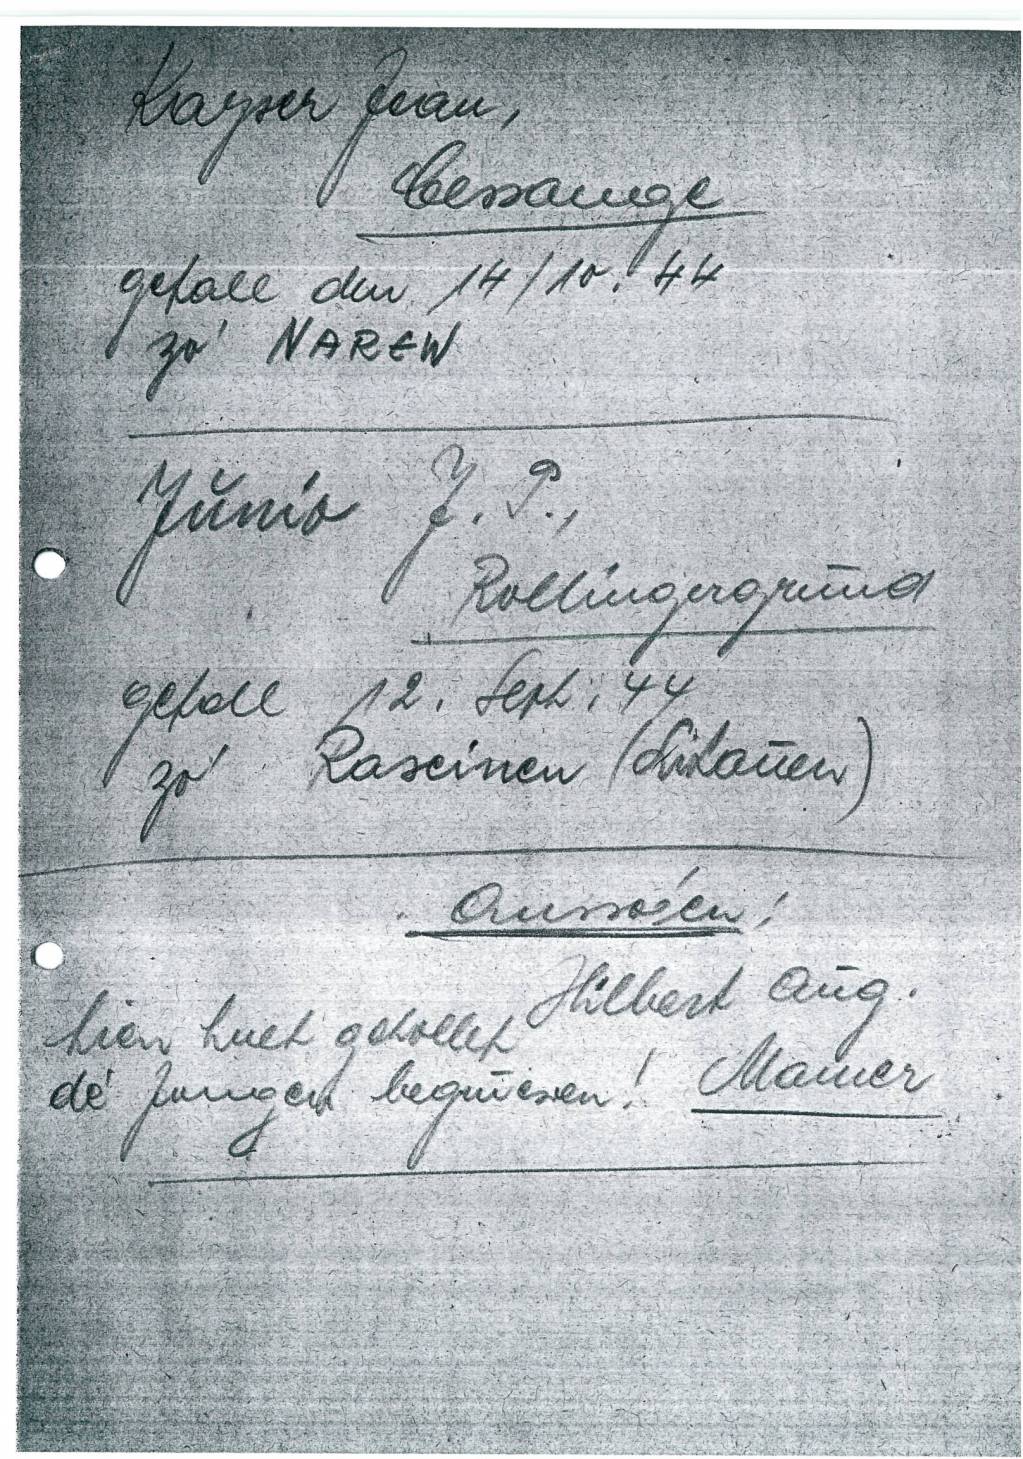 Kayser Jean,
Cessange
gefall den 14/10. 44
zo' NAREW
Junio J. P.,
Rollingergrūnd
gefall 12. Sept. 44
zo' Raseinen (Litaūen)
Aussoen!
Hilbert Aūg.
hien huet gehollef
Mamer
dé Jongen begruewen!